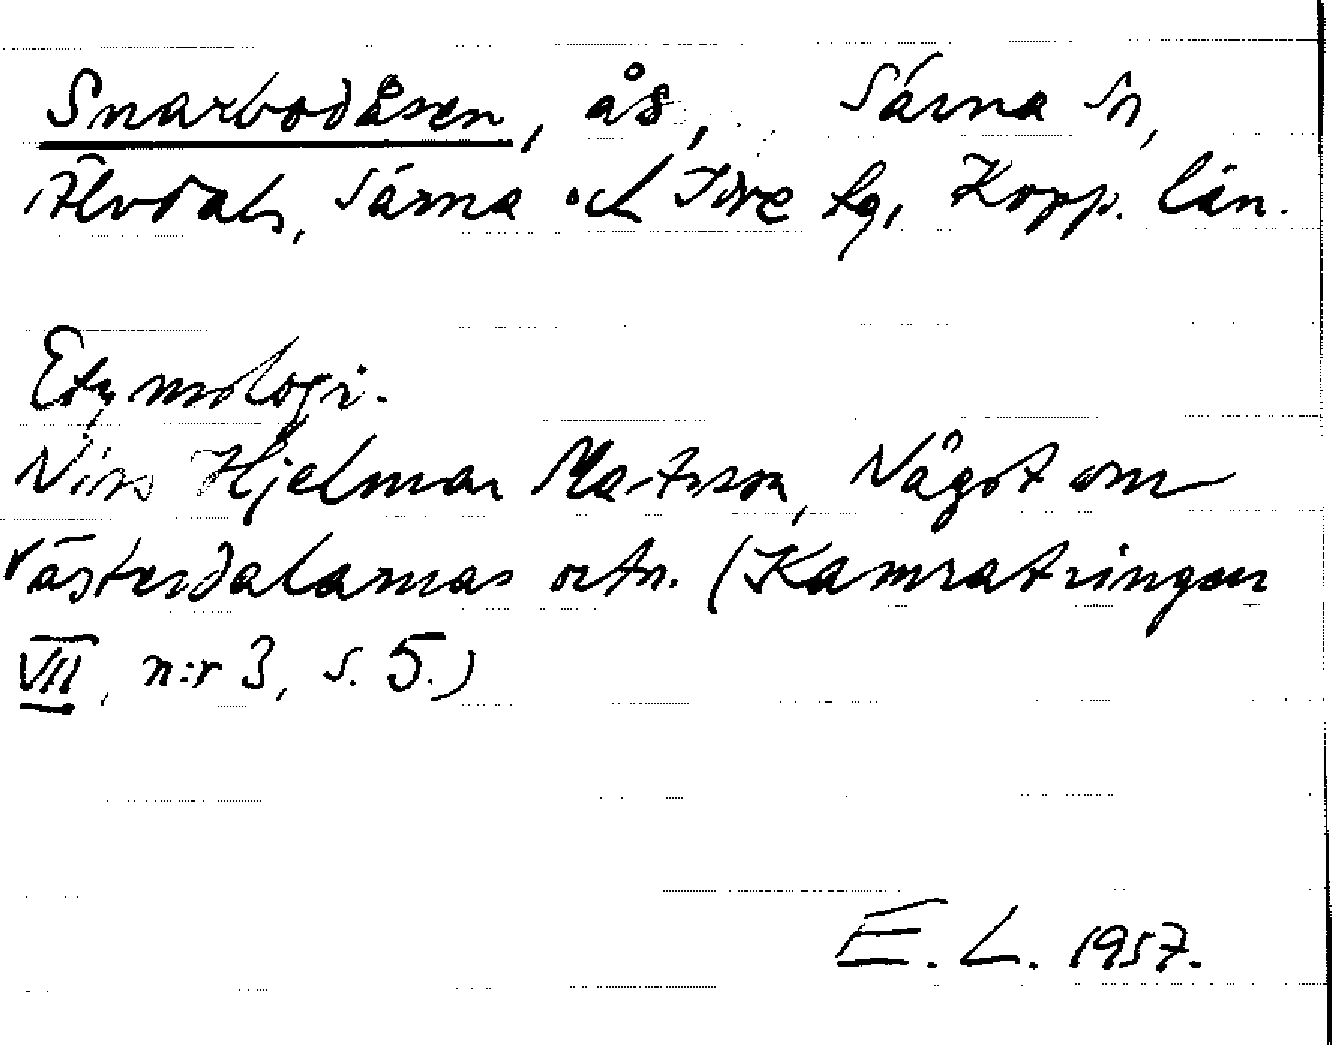 Snarbodåsen, ås, Särna sn,
Älvdals, Särna och Idre tg, Kopp. län.
Etymologi.
Niss Hjelmar Matsson, Något om
västerdalarnas ortn. (Kamratringen
VII, n:r 3, s. 5.)
E. L. 1957.